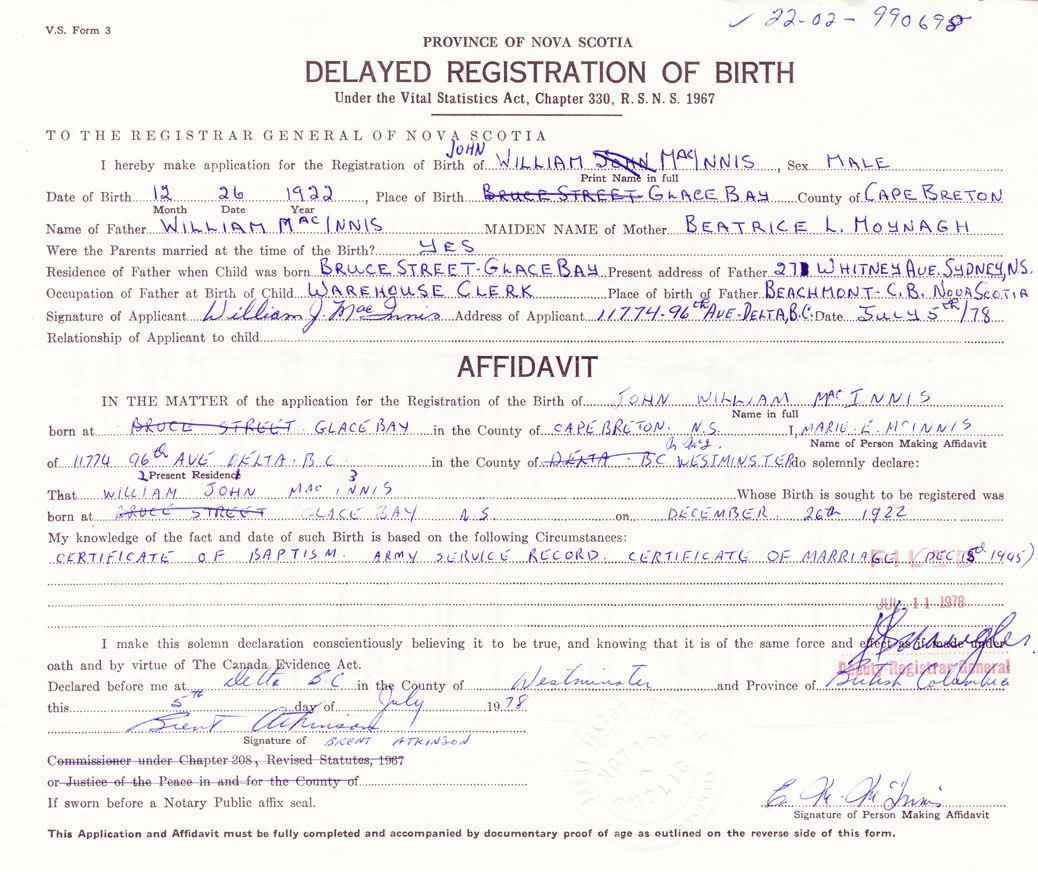 V.S. Form 3
✓ 22-02-990698
PROVINCE OF NOVA SCOTIA
DELAYED REGISTRATION OF BIRTH
Under the Vital Statistics Act, Chapter 330, R. S. N. S. 1967
TO THE REGISTRAR GENERAL OF NOVA SCOTIA
JOHN
I hereby make application for the Registration of Birth of WILLIAM JOHN MACINNIS, Sex MALE
Print Name in full
Date of Birth 12 26 1922, Place of Birth BRUCE STREET-GLACE BAY County of CAPE BRETON
Month Date Year
Name of Father WILLIAM MACINNIS MAIDEN NAME of Mother BEATRICE L. MOYNAGH
Were the Parents married at the time of the Birth? YES
Residence of Father when Child was born BRUCE STREET-GLACE BAY Present address of Father 27 WHITNEY AVE. SYDNEY, N.S.
Occupation of Father at Birth of Child WAREHOUSE CLERK Place of birth of Father BEACHMONT-C.B. NOVA SCOTIA
Signature of Applicant William J. MacInnis Address of Applicant 11774-96th AVE-DELTA, B.C. Date JULY 5th/78
Relationship of Applicant to child
AFFIDAVIT
IN THE MATTER of the application for the Registration of the Birth of JOHN WILLIAM MACINNIS
Name in full
born at BRUCE STREET. GLACE BAY in the County of CAPE BRETON. N.S. I, MARIE E. MCINNIS
Name of Person Making Affidavit
of 11774 96th AVE DELTA. B.C. in the County of DELTA BC WESTMINSTER do solemnly declare:
Present Residence
2 1 3
That WILLIAM JOHN MACINNIS Whose Birth is sought to be registered was
born at BRUCE STREET GLACE BAY N.S. on DECEMBER. 26th 1922
My knowledge of the fact and date of such Birth is based on the following Circumstances:
CERTIFICATE OF BAPTISM. ARMY SERVICE RECORD. CERTIFICATE OF MARRIAGE (DEC 5th 1945)
FILED
JUL 11 1978
I make this solemn declaration conscientiously believing it to be true, and knowing that it is of the same force and effect as if made under
oath and by virtue of The Canada Evidence Act.
Deputy Registrar General
Declared before me at Delta BC in the County of Westminster and Province of British Columbia
this 5th day of July 1978
Brent Atkinson
Signature of BRENT ATKINSON
Commissioner under Chapter 208, Revised Statutes, 1967
or Justice of the Peace in and for the County of
If sworn before a Notary Public affix seal.
E. M. McInnis
Signature of Person Making Affidavit
This Application and Affidavit must be fully completed and accompanied by documentary proof of age as outlined on the reverse side of this form.